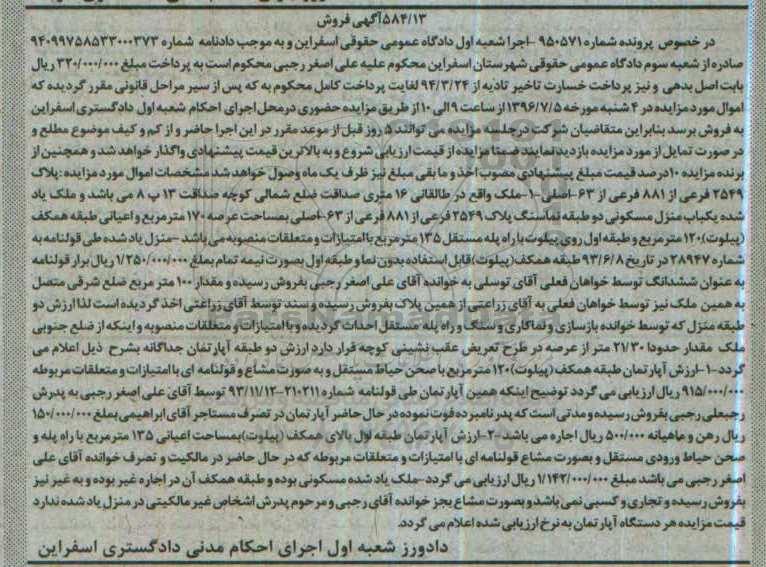 ۵۸۴/۱۳آگهی فروش
در خصوص پرونده شماره ۹۵۰۵۷۱ -اجرا شعبه اول دادگاه عمومی حقوقی اسفراین و به موجب دادنامه شماره ۹۴۰۹۹۷۵۸۵۳۳۰۰۰۳۷۳
صادره از شعبه سوم دادگاه عمومی حقوقی شهرستان اسفراین محکوم علیه علی اصغر رجبی محکوم است به پرداخت مبلغ ۳۲۰/۰۰۰/۰۰۰ ریال
بابت اصل بدهی و نیز پرداخت خسارت تاخیر تادیه از ۹۴/۳/۲۴ لغایت پرداخت کامل محکوم به که پس از سیر مراحل قانونی مقرر گردیده که
اموال مورد مزایده در ۴ شنبه مورخه ۱۳۹۶/۷/۵ از ساعت ۹ الی ۱۰ از طریق مزایده حضوری درمحل اجرای احکام شعبه اول دادگستری اسفراین
به فروش برسد بنابراین متقاضیان شرکت درجلسه مزایده می توانند ۵ روز قبل از موعد مقرر در این اجرا حاضر و از کم و کیف موضوع مطلع و
در صورت تمایل از مورد مزایده بازدید نمایند ضمنا مزایده از قیمت ارزیابی شروع و به بالاترین قیمت پیشنهادی واگذار خواهد شد و همچنین از
برنده مزایده ۱۰درصد قیمت مبلغ پیشنهادی مصوب اخذ و ما بقی مبلغ نیز ظرف یک ماه وصول خواهد شد مشخصات اموال مورد مزایده :پلاک
۲۵۴۹ فرعی از ۸۸۱ فرعی از ۶۳-اصلی-۱-ملک واقع در طالقانی ۱۶ متری صداقت ضلع شمالی کوچه صداقت ۱۳ پ ۸ می باشد و ملک یاد
شده یکباب منزل مسکونی دو طبقه نماسنگ پلاک ۲۵۴۹ فرعی از ۸۸۱ فرعی از ۶۳-اصلی بمساحت عرصه ۱۷۰ مترمربع و اعیانی طبقه همکف
(پیلوت)۱۲۰ متر مربع و طبقه اول روی پیلوت با راه پله مستقل ۱۳۵ متر مربع با امتیازات و متعلقات منصوبه می باشد -منزل یاد شده طی قولنامه به
شماره ۲۸۹۴۷ در تاریخ ۹۳/۶/۸ طبقه همکف (پیلوت) قابل استفاده بدون نما و طبقه اول بصورت نیمه تمام بمبلغ ۱/۲۵۰/۰۰۰/۰۰۰ ریال برابر قولنامه
به عنوان ششدانگ توسط خواهان فعلی آقای توسلی به خوانده آقای علی اصغر رجبی بفروش رسیده و مقدار ۱۰۰ متر مربع ضلع شرقی متصل
به همین ملک نیز توسط خواهان فعلی به آقای زراعتی از همین پلاک بفروش رسیده و سند توسط آقای زراعتی اخذ گردیده است لذا ارزش دو
طبقه منزل که توسط خوانده بازسازی و نماکاری و سنگ و راه پله مستقل احداث گردیده و با امتیازات و متعلقات منصوبه و اینکه از ضلع جنوبی
ملک مقدار حدودا ۲۱/۳۰ متر از عرصه در طرح تعریض عقب نشینی کوچه قرار دارد ارزش دو طبقه آپارتمان جداگانه بشرح ذیل اعلام می
گردد-۱-ارزش آپارتمان طبقه همکف (پیلوت)۱۲۰ متر مربع با صحن حیاط مستقل و به صورت مشاع و قولنامه ای با امتیازات و متعلقات مربوطه
۹۱۵/۰۰۰/۰۰۰ ریال ارزیابی می گردد توضیح اینکه همین آپارتمان طی قولنامه شماره ۲۱۰۲۱۱-۹۳/۱۱/۱۲ توسط آقای علی اصغر رجبی به پدرش
رجبعلی رجبی بفروش رسیده و مدتی است که پدر نامبرده فوت نموده در حال حاضر آپارتمان در تصرف مستاجر آقای ابراهیمی بمبلغ ۱۵۰/۰۰۰/۰۰۰
ریال رهن و ماهیانه ۵۰۰/۰۰۰ ریال اجاره می باشد ۲-ارزش آپارتمان طبقه اول بالای همکف (پیلوت)بمساحت اعیانی ۱۳۵ متر مربع با راه پله و
صحن حیاط ورودی مستقل و بصورت مشاع قولنامه ای با امتیازات و متعلقات مربوطه که در حال حاضر در مالکیت و تصرف خوانده آقای علی
اصغر رجبی می باشد مبلغ ۱/۱۴۲/۰۰۰/۰۰۰ ریال ارزیابی می گردد-ملک یاد شده مسکونی بوده و طبقه همکف آن در اجاره غیر بوده و به غیر نیز
بفروش رسیده و تجاری و کسبی نمی باشد و بصورت مشاع بجز خوانده آقای رجبی و مرحوم پدرش اشخاص غیر مالکیتی در منزل یاد شده ندارد
قیمت مزایده هر دستگاه آپارتمان به نرخ ارزیابی شده اعلام می گردد.
دادورز شعبه اول اجرای احکام مدنی دادگستری اسفراین